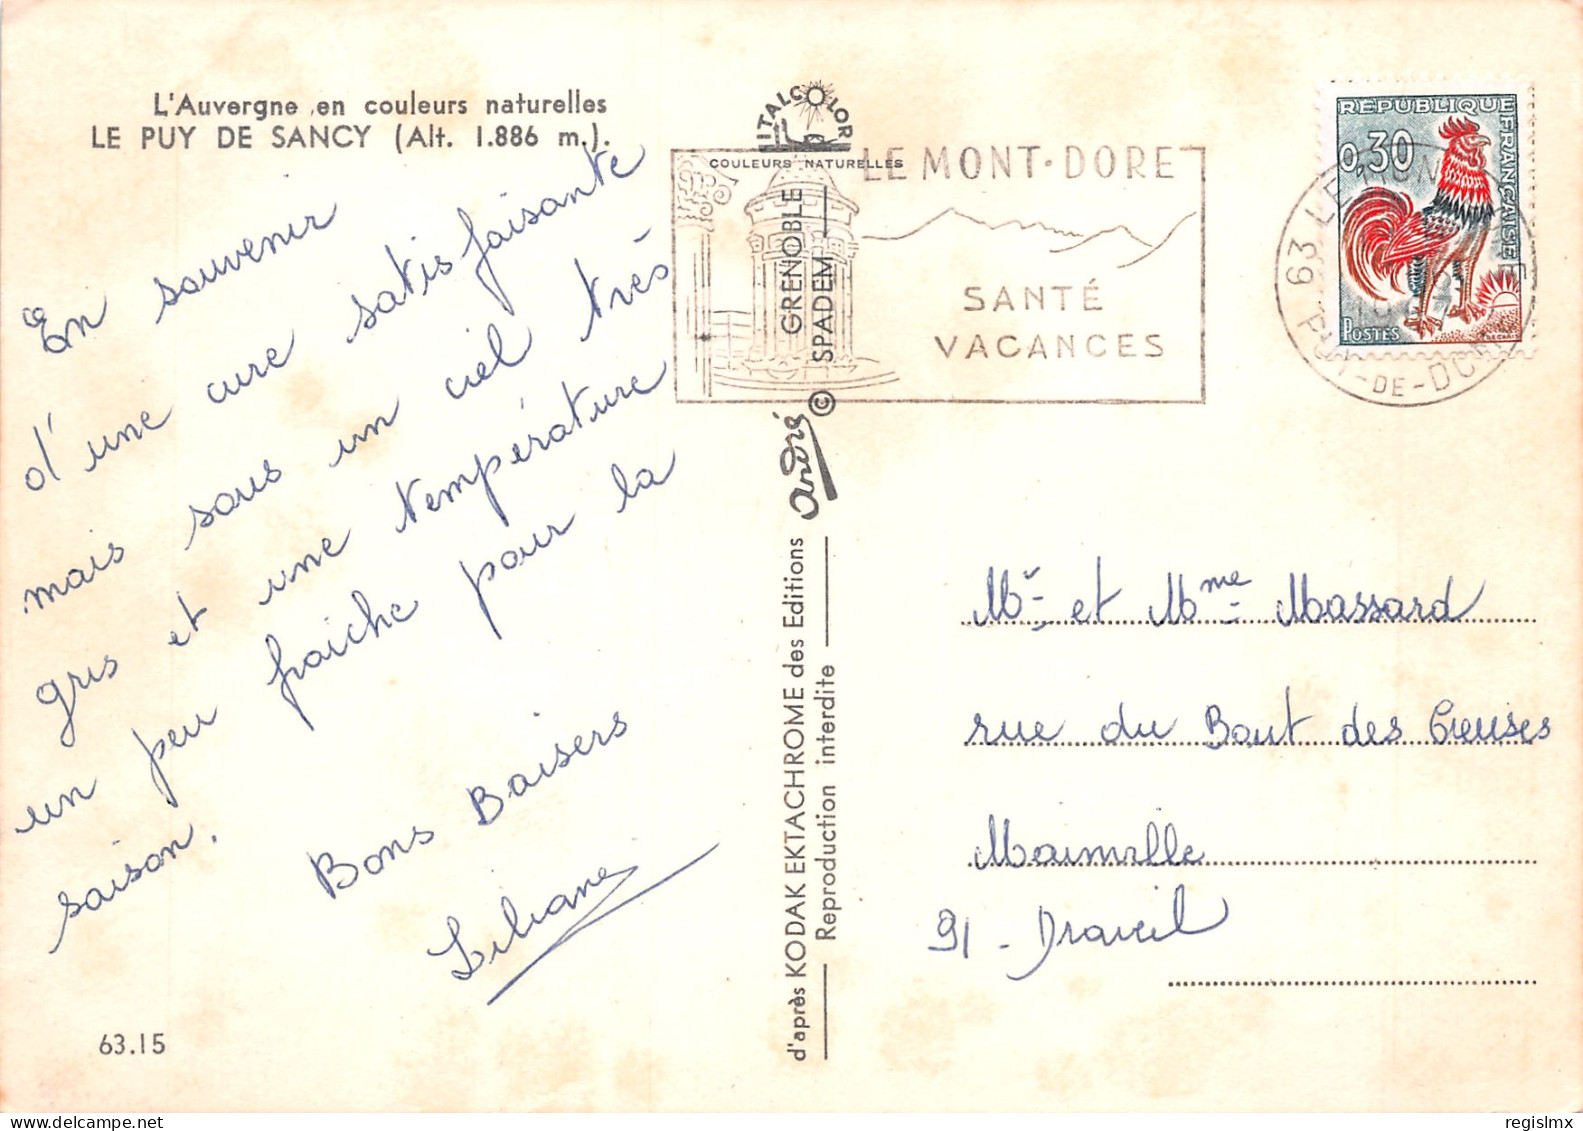 L'Auvergne en couleurs naturelles
LE PUY DE SANCY (Alt. 1.886 m.).
En souvenir
d'une cure satisfaisante
mais sous un ciel très
gris et une température
un peu fraiche pour la
saison.
Bons Baisers
Liliane
63.15
ITALCOLOR
COULEURS NATURELLES
GRENOBLE
SPADEM
©
André
d'après KODAK EKTACHROME des Editions
Reproduction interdite
LE MONT-DORE
SANTÉ
VACANCES
REPUBLIQUE FRANÇAISE
0,30
POSTES
63 LE MONT-DORE
PUY-DE-DOME
Mr et Mme Massard
rue du Bout des Creuses
Mainville
91 - Draveil
regislmx